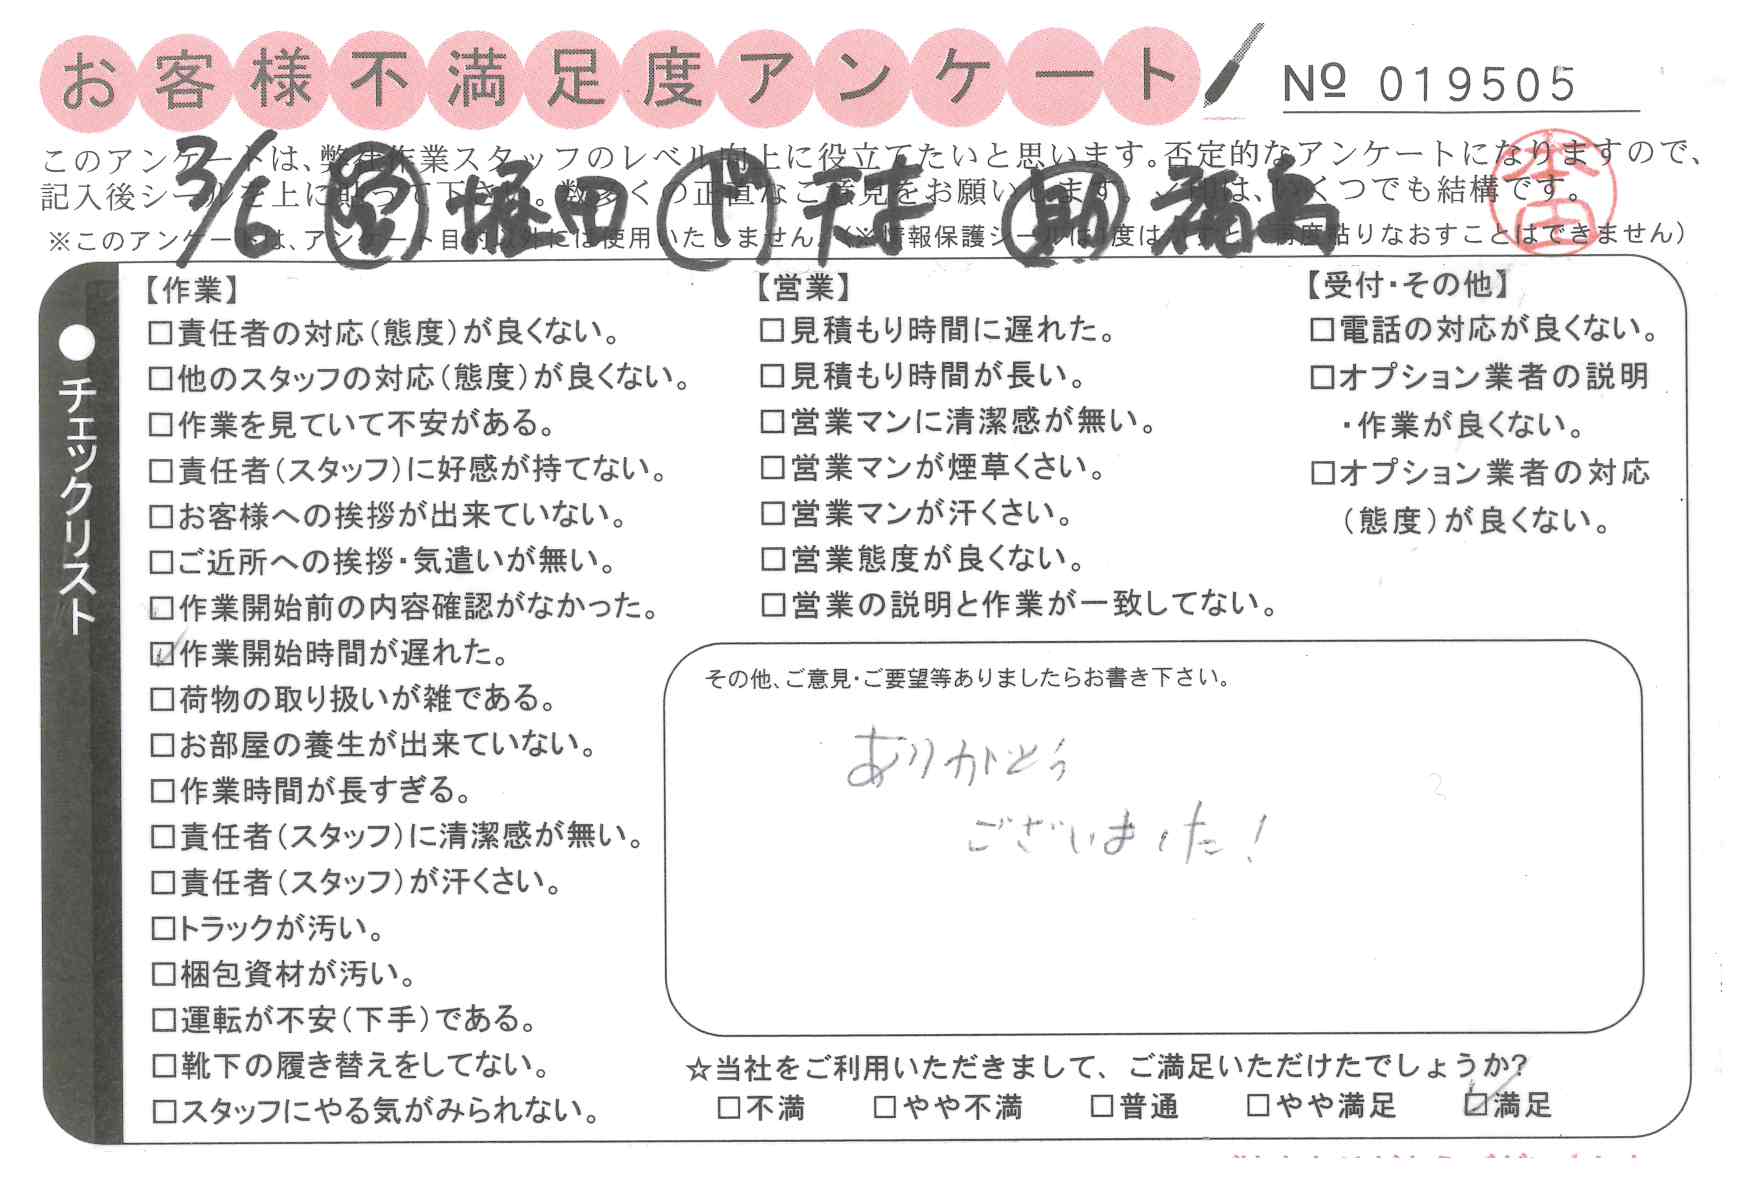 お客様不満足度アンケート
№ 019505
このアンケートは、弊社作業スタッフのレベル向上に役立てたいと思います。否定的なアンケートになりますので、
記入後シールを上に貼って下さい。数多くの正直なご意見をお願いします。✓印は、いくつでも結構です。
※このアンケートは、アンケート目的以外には使用いたしません。(※情報保護シールは1度はがすと、再度貼りなおすことはできません)
3/6 堀田 木村 福島
本田
●チェックリスト
【作業】
□責任者の対応(態度)が良くない。
□他のスタッフの対応(態度)が良くない。
□作業を見ていて不安がある。
□責任者(スタッフ)に好感が持てない。
□お客様への挨拶が出来ていない。
□ご近所への挨拶・気遣いが無い。
□作業開始前の内容確認がなかった。
☑作業開始時間が遅れた。
□荷物の取り扱いが雑である。
□お部屋の養生が出来ていない。
□作業時間が長すぎる。
□責任者(スタッフ)に清潔感が無い。
□責任者(スタッフ)が汗くさい。
□トラックが汚い。
□梱包資材が汚い。
□運転が不安(下手)である。
□靴下の履き替えをしてない。
□スタッフにやる気がみられない。
【営業】
□見積もり時間に遅れた。
□見積もり時間が長い。
□営業マンに清潔感が無い。
□営業マンが煙草くさい。
□営業マンが汗くさい。
□営業態度が良くない。
□営業の説明と作業が一致してない。
【受付・その他】
□電話の対応が良くない。
□オプション業者の説明
・作業が良くない。
□オプション業者の対応
(態度)が良くない。
その他、ご意見・ご要望等ありましたらお書き下さい。
ありがとう
ございました!
☆当社をご利用いただきまして、ご満足いただけたでしょうか?
□不満 □やや不満 □普通 □やや満足 ☑満足